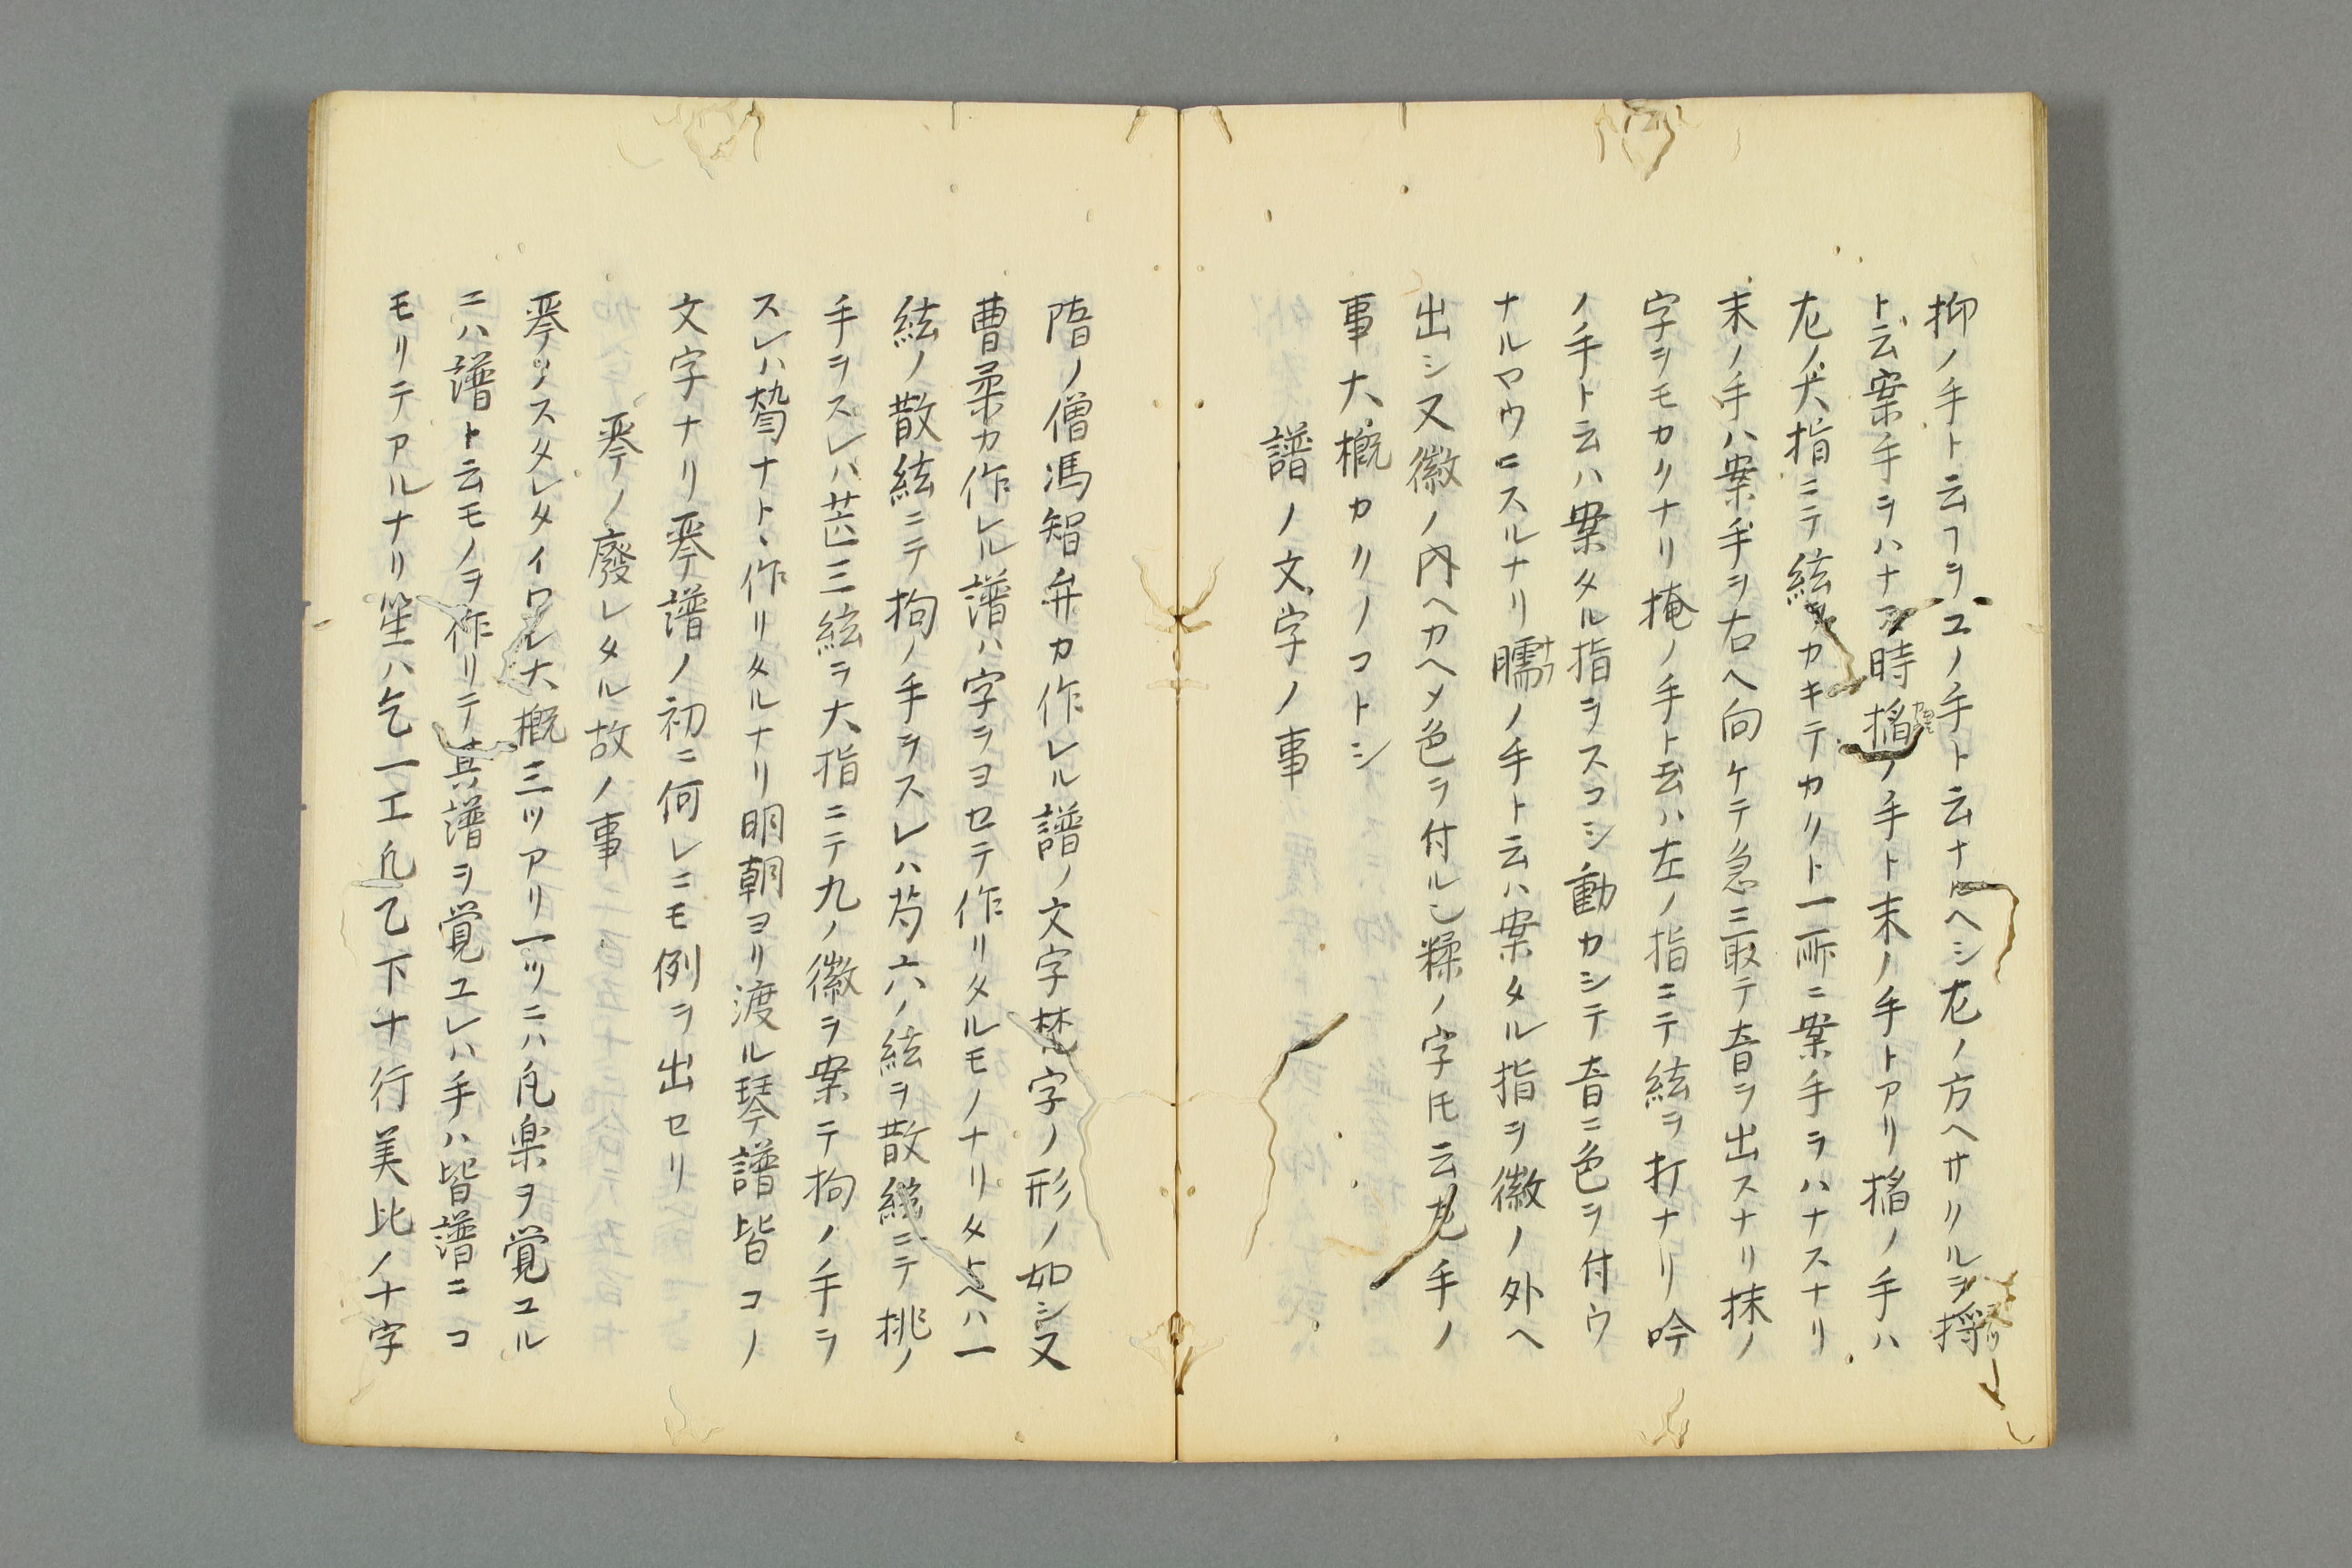 抑ノ手ト云フヲユノ手ト云ナルヘシ左ノ方ヘサリルヲ捋
ト云案手ヲハナス時搯ノ手ト末ノ手トアリ搯ノ手ハ
左ノ大指ニテ絃ヲカキテカリト一所ニ案手ヲハナスナリ
末ノ手ハ案手ヲ右ヘ向ケテ急ニ取テ音ヲ出スナリ抹ノ
字ヲモカリナリ掩ノ手ト云ハ左ノ指ニテ絃ヲ打ナリ吟
ノ手ト云ハ案タル指ヲスコシ動カシテ音ニ色ヲ付ウ
ナルヤウニスルナリ臑ノ手ト云ハ案タル指ヲ徽ノ外ヘ
出シ又徽ノ内ヘカヘメ色ヲ付ル乄糅ノ字𪜈云左手ノ
事大概カリノコトシ
譜ノ文字ノ事
隋ノ僧馮智弁カ作レル譜ノ文字梵字ノ形ノ如シ又
曹柔カ作レル譜ハ字ヲヨセテ作リタルモノナリタトヘハ一
絃ノ散絃ニテ拘ノ手ヲスレハ芍六ノ絃ヲ散絃ニテ挑ノ
手ヲスレハ三絃ヲ大指ニテ九ノ徽ヲ案テ拘ノ手ヲ
スレハナト、作リタルナリ明朝ヨリ渡ル琴譜皆コノ
文字ナリ琴譜ノ初ニ何レニモ例ヲ出セリ
琴ノ廢レタル故ノ事
琴ノスタレタイワレ大概三ツアリ一ツニハ凡楽ヲ覚ユル
ニハ譜ト云モノヲ作リテ其譜ヲ覚ユレハ手ハ皆譜ニコ
モリテアルナリ笙ハ乞一工凡乙下十行美比ノ十字